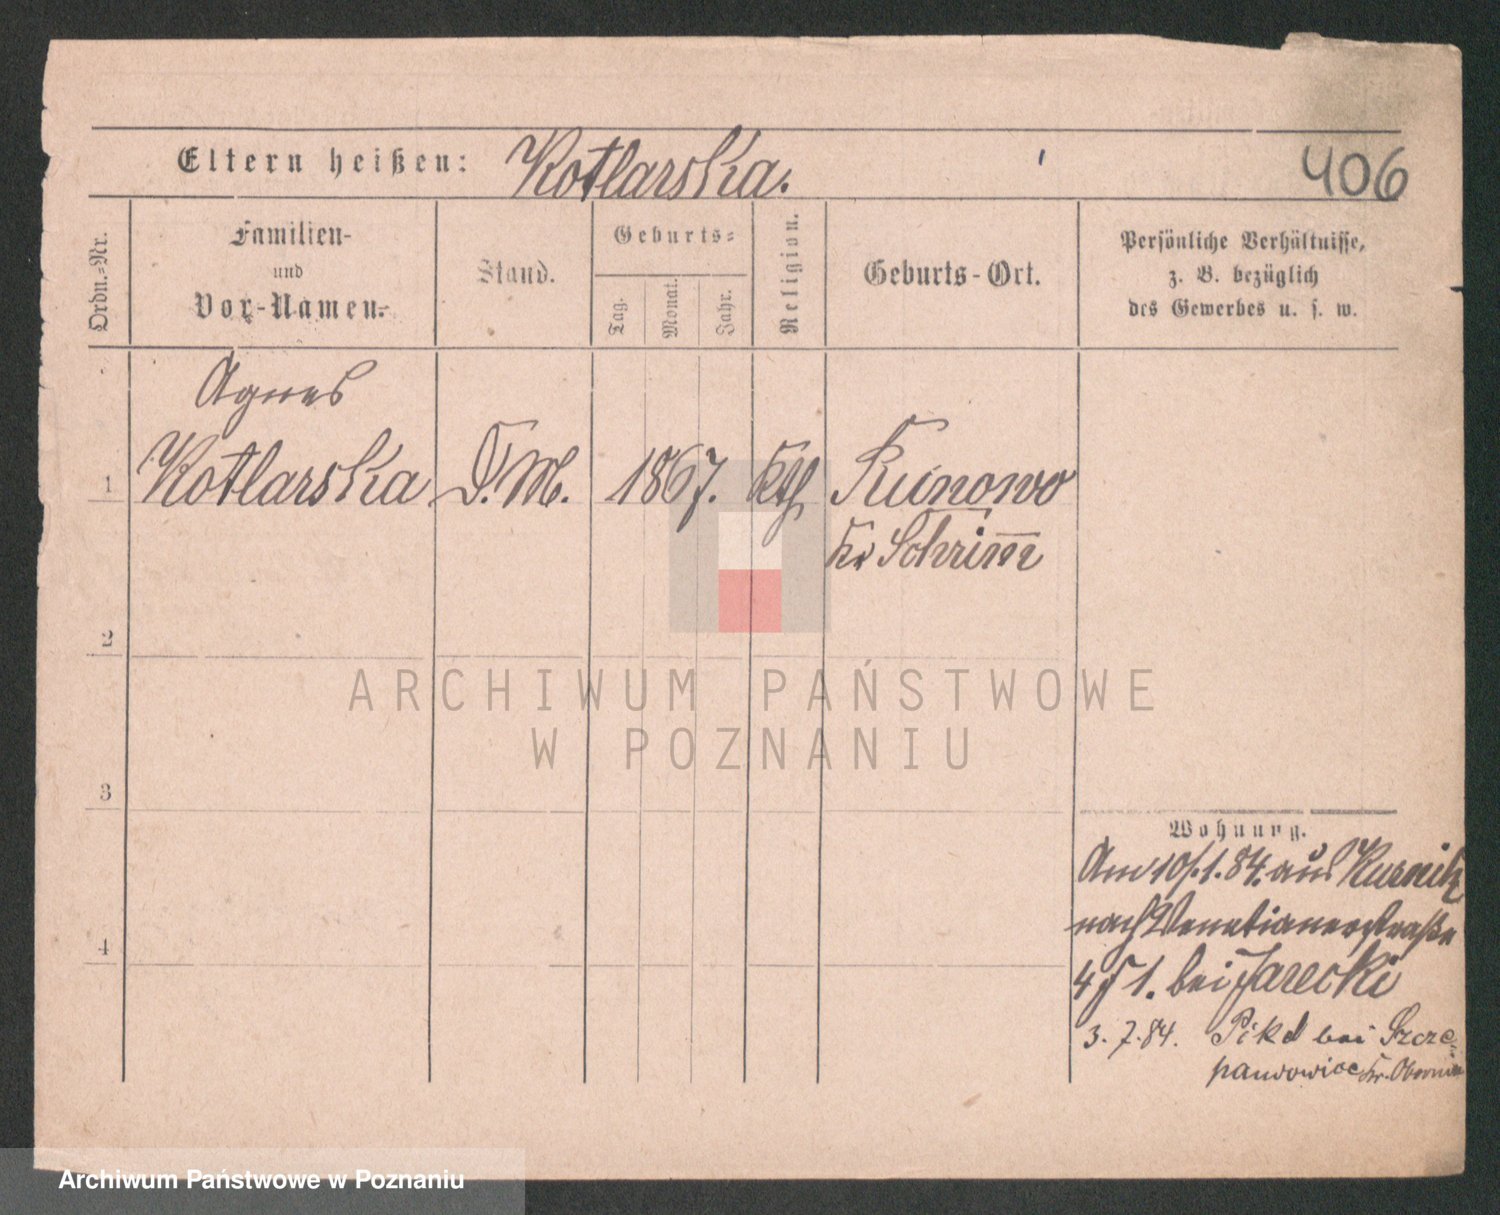 Eltern heißen: Kotlarska.
406
Ordn.-Nr.
Familien-
und
Vor-Namen.
Stand.
Geburts-
Tag.
Monat.
Jahr.
Religion.
Geburts-Ort.
Persönliche Verhältnisse,
z. B. bezüglich
des Gewerbes u. s. w.
Agnes
1 Kotlarska D.M. 1867. Kth Runowo
Kr Schrim̅
2
ARCHIWUM PAŃSTWOWE
W POZNANIU
3
Wohnung.
Am 10/.1.84. aus Kurnik
nach Venetianerstraße
4
4 J 1. bei Jarecki
3.7.84. bei Szcze-
panowice Kr. Obornik
Archiwum Państwowe w Poznaniu